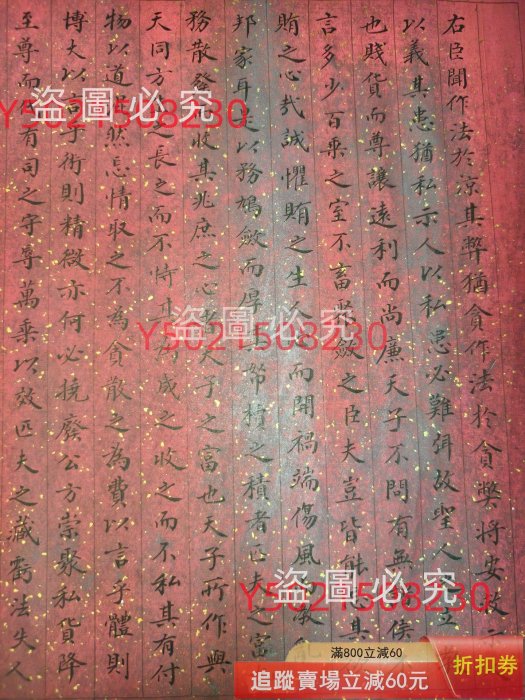 右臣聞作法於涼其弊猶貪作法於貪弊將安救
以義其患猶私示人以私患必難弭故聖人立
也賤貨而尊讓遠利而尚廉天子不問有無侯
言多少百乘之室不畜聚斂之臣夫豈皆能其
賄之心哉誠懼賄之生人而開禍端傷風
邦家耳是以務鳩斂而厚其帑櫝之積者匹夫之富
務散發收其兆庶之心天子之富也天子所作與
天同方之長之而不恃其為成之收之而不私其有付
物以道然忘情取之不為貪散之為費以言乎體則
博大以言乎術則精微亦何必撓廢公方崇聚私貨降
至尊而有司之守辱萬乘以效匹夫之藏虧法失人
盜圖必究
Y5021508230
盜圖必究
Y5021508230
盜圖必究
Y5021508230
滿800立減60
追蹤賣場立減60元
折扣券